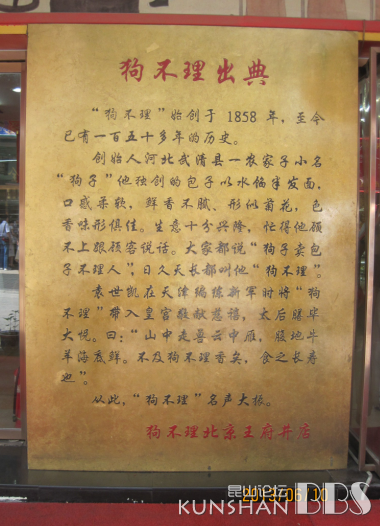 狗不理出典
“狗不理”始创于1858年，至今
已有一百五十多年的历史。
创始人河北武清县一农家子小名
“狗子”他独创的包子以水馅半发面，
口感柔软，鲜香不腻、形似菊花，色
香味形俱佳。生意十分兴隆，忙得他顾
不上跟顾客说话。大家都说“狗子卖包
子不理人”，日久天长都叫他“狗不理”。
袁世凯在天津编练新军时将“狗
不理”带入皇宫敬献慈禧，太后膳毕
大悦。曰：“山中走兽云中雁，腹地牛
羊海底鲜。不及狗不理香矣，食之长寿
也”。
从此，“狗不理”名声大振。
狗不理北京王府井店
昆山论坛
2013/06/10
KUNSHAN BBS